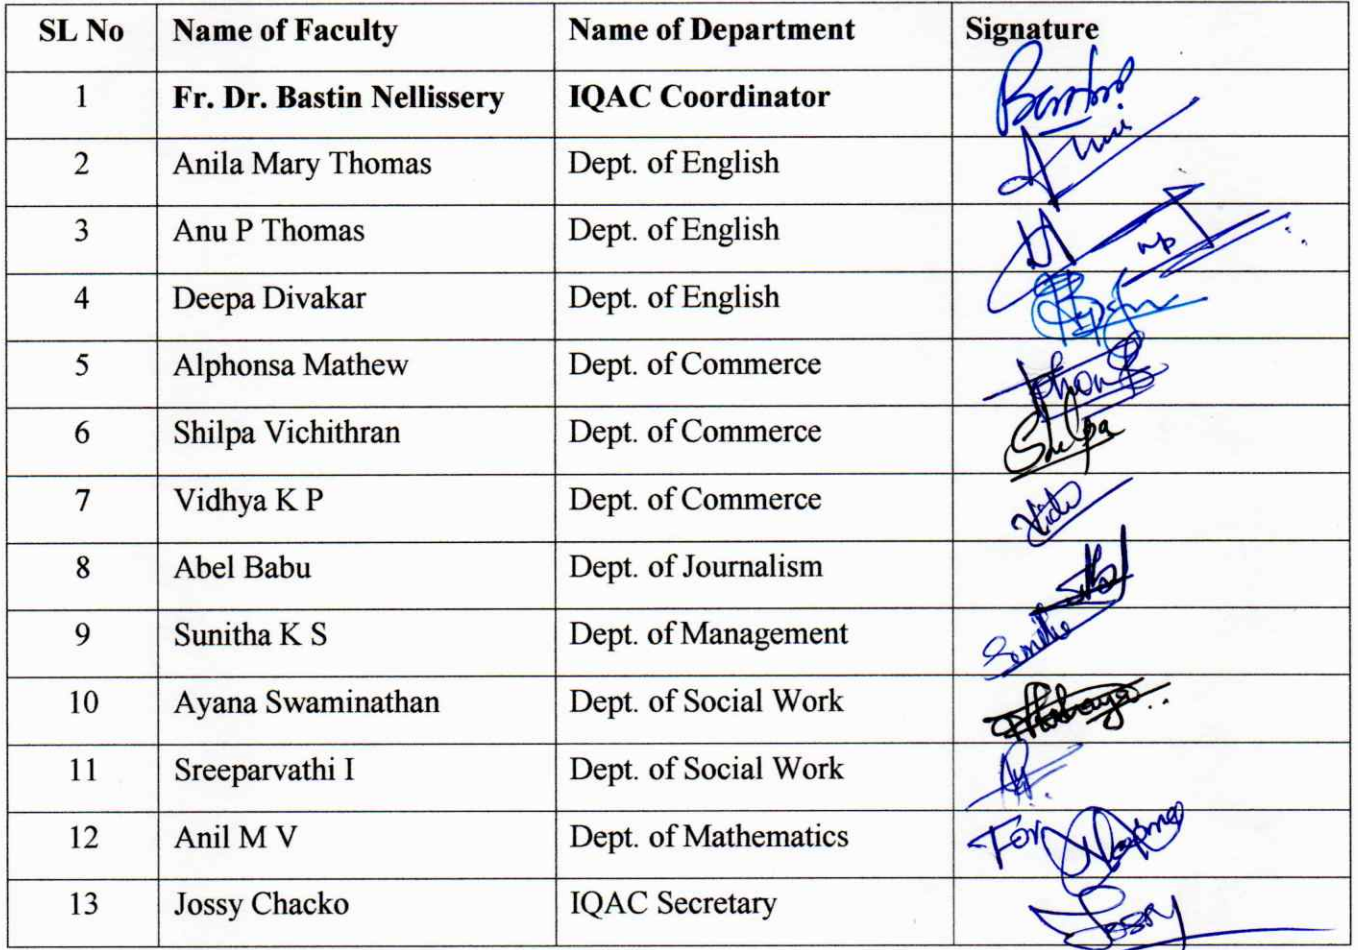 SL No Name of Faculty Name of Department Signature
1 Fr. Dr. Bastin Nellissery IQAC Coordinator Bastin
2 Anila Mary Thomas Dept. of English
3 Anu P Thomas Dept. of English
4 Deepa Divakar Dept. of English
5 Alphonsa Mathew Dept. of Commerce
6 Shilpa Vichithran Dept. of Commerce Shilpa
7 Vidhya K P Dept. of Commerce
8 Abel Babu Dept. of Journalism
9 Sunitha K S Dept. of Management
10 Ayana Swaminathan Dept. of Social Work
11 Sreeparvathi I Dept. of Social Work
12 Anil M V Dept. of Mathematics For
13 Jossy Chacko IQAC Secretary Jossy